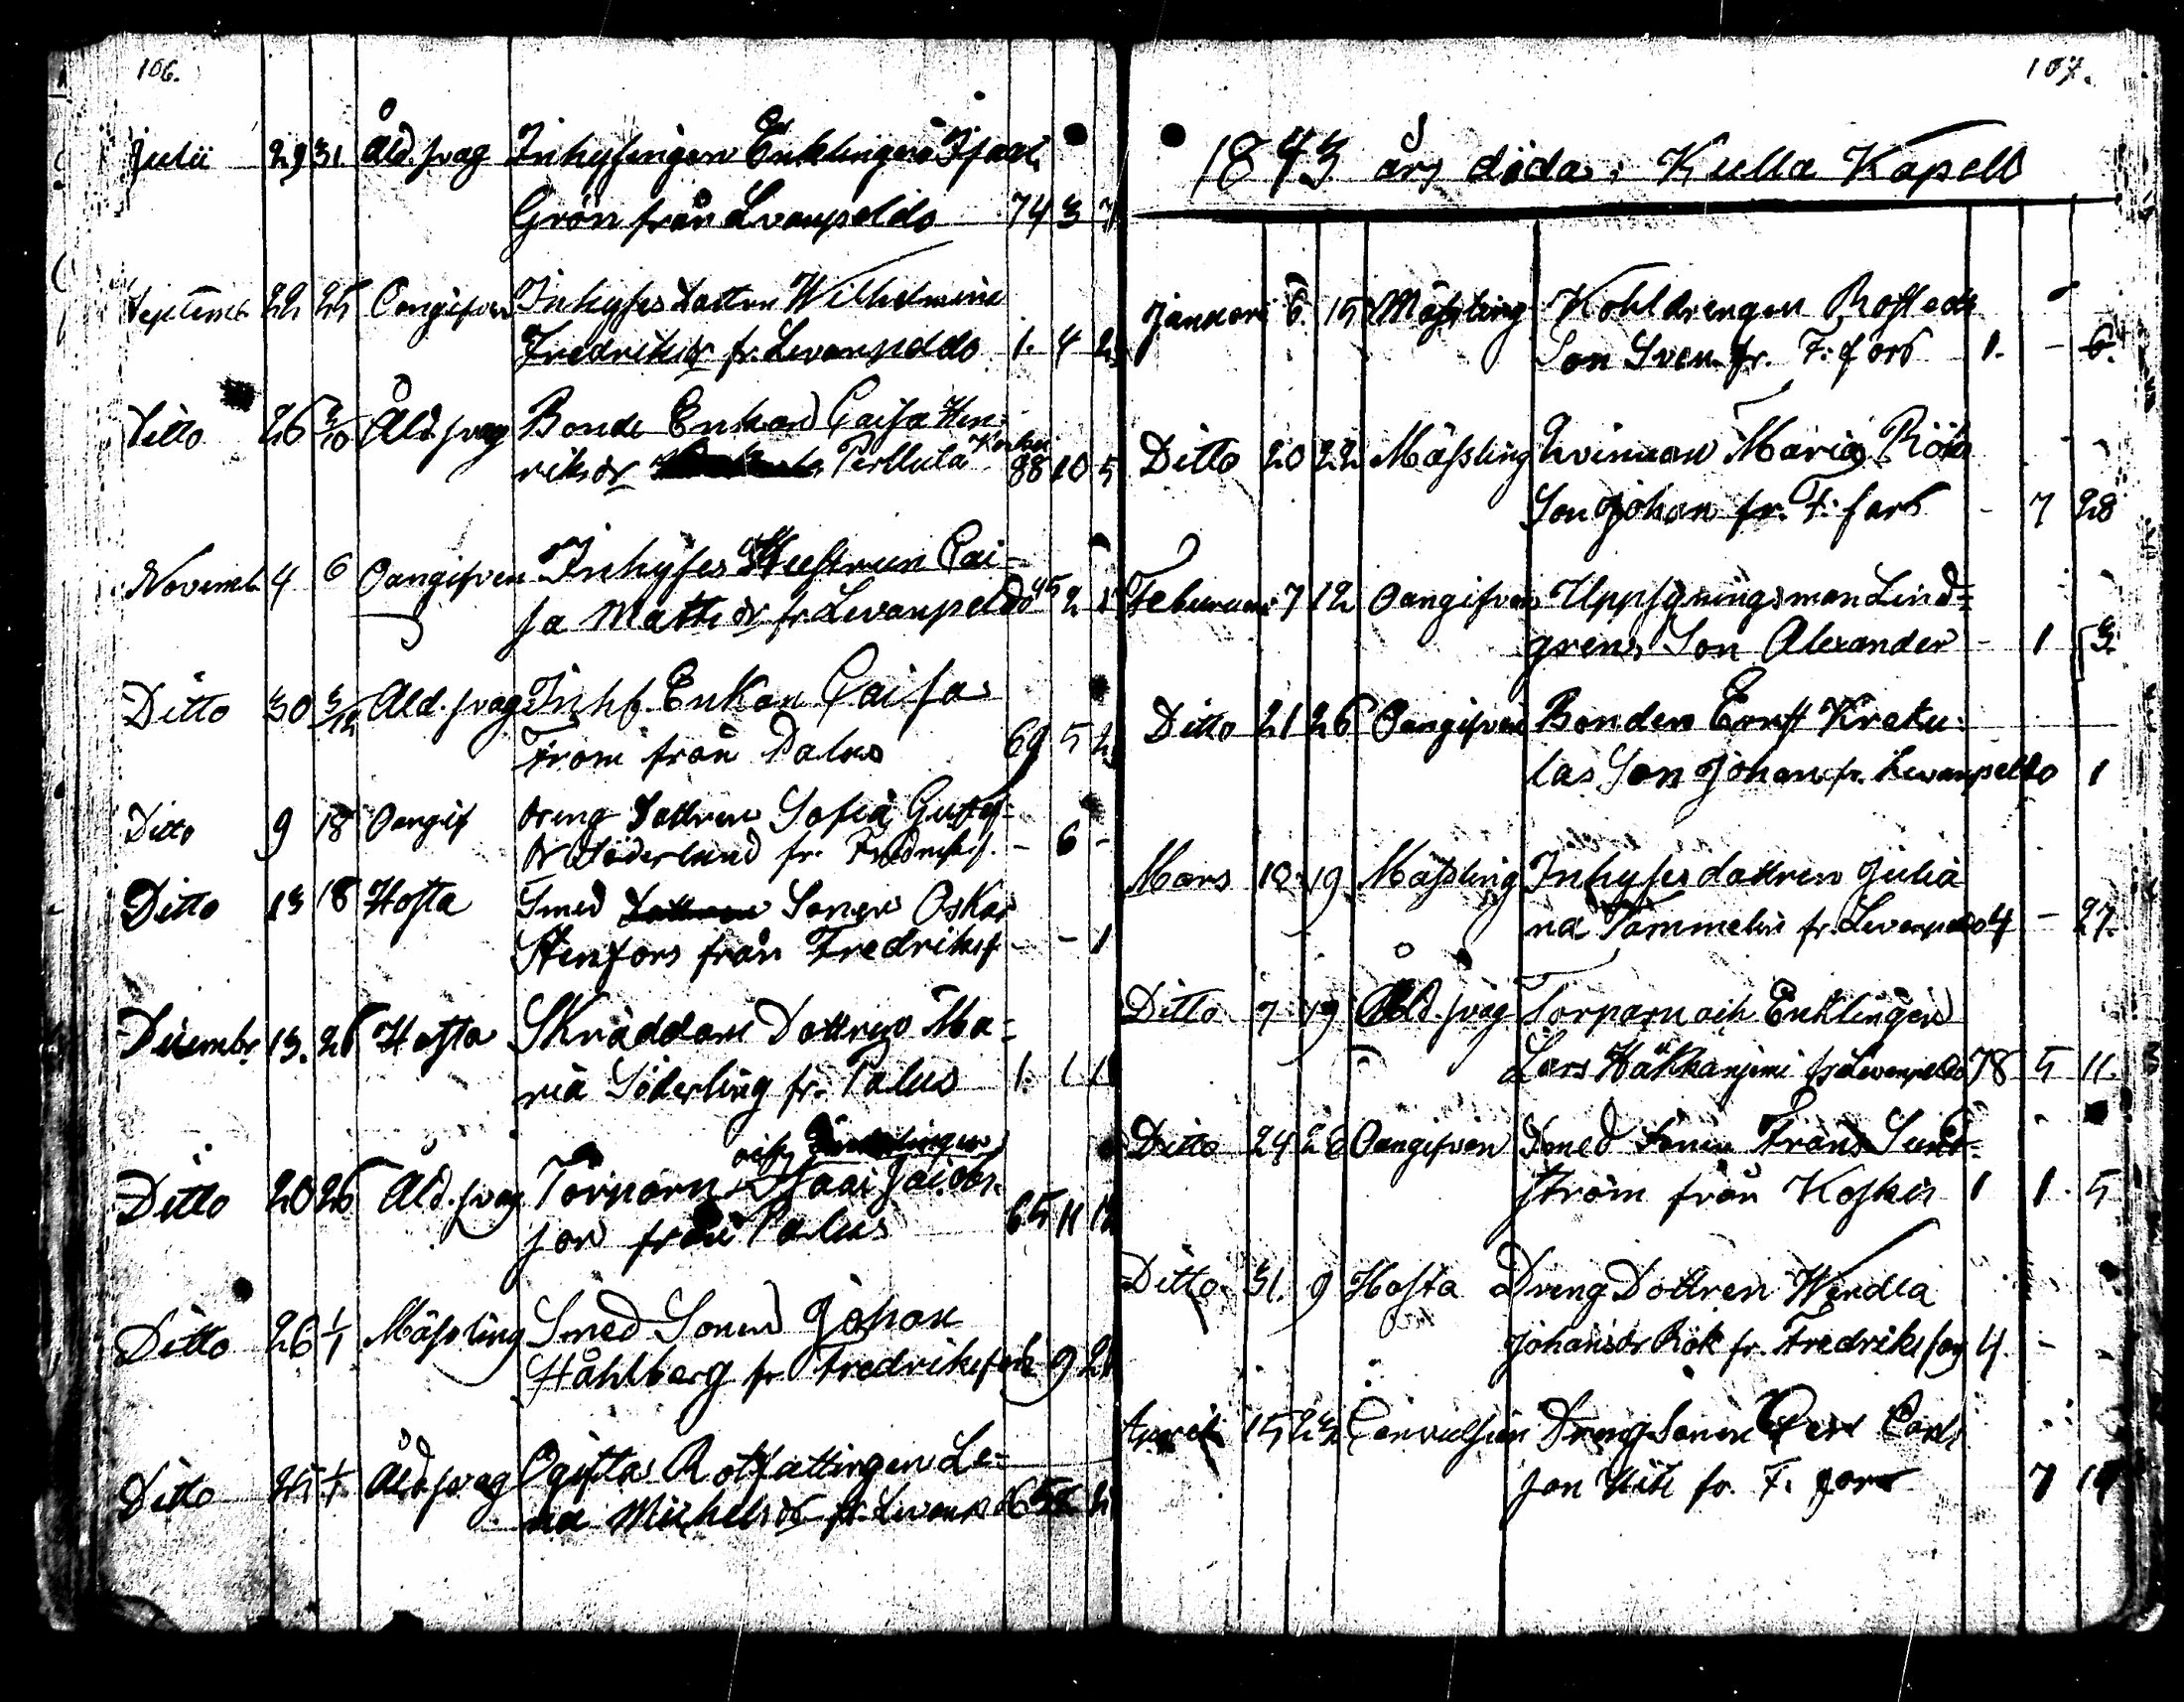 106.
Julii 29 31. Åld. svag Inhysingen Enklingen Isaac
Grön från Lvanpeldo 74 3 7
Septemb. 22 25 Oangifven Inhyses Dottren Wilhelmina
Fredriksdr fr. Levanpeldo 1. 4 2
Ditto 26 3/10 Åld. svag Bonde Enkan Caisa Hen-
riksdr Perttula Koskis 88 10 5
Novemb. 4 6 Oangifven Inhyses Hustrun Cai-
sa Mattsdr fr. Levanpeldo 45 2 1
Ditto 30 3/12 Åld. svag Inhs. Enkan Caisa
From från Palus 69 5 2
Ditto 9 18 Oangif Dreng Dottren Sofia Gustaf-
dr Söderlund fr. Fredriksf. - 6 -
Ditto 13 18 Hosta Smed Dottren Sonen Oskar
Stenfors från Fredriksf - - 1
Decembr 13. 26 Hosta Skräddare Dottren Ma-
ria Söderling fr. Palus 1. 1 1
och Enklingen
Ditto 20 26 Åld. svag Torparn Isaac Jacobs
son från Palus 65 11 1
Ditto 26 1/1 Mässling Smed Sonen Johan
Ståhlberg fr Fredriksf 9 2
Ditto 25 1/1 Åld. svag Ogifta Rotfattingen Le-
na Michelsdr fr. Levanp
107.
1843 års döda i Kulla Kapell
Januari 6. 15 Mässling Kohldrengen Roststedts
Son Sven fr. F: fors 1. - 6.
Ditto 20 22 Mässling Qvinnan Maria Röks
Son Johan fr. F: fors - 7 28
Februari 7 12 Oangifven Uppsyningsman Lind-
grens Son Alexander - 1 3.
Ditto 21 26 Oangifven Bonden Ernst Kreku-
las Son Johan fr. Levanpeldo 1
Mars 12 19. Mässling Inhyses dottren Julia
na Tammelin fr. Levanpeldo 4 - 27.
Ditto 7 19 Åld. svag Torparn och Enklingen
Lars Häkkäniemi fr Levanpeldo 78 5 11.
Ditto 24 26 Oangifven Smed Sonen Frans Sund-
ström från Koskis 1 1. 5
Ditto 31. 9 Hosta Dreng Dottren Wendla
Johansdr Rök fr. Fredriksfors 4. -
April 15 23 Convulsion Dreng Sonen Carl Carls
son fr. F. fors 7